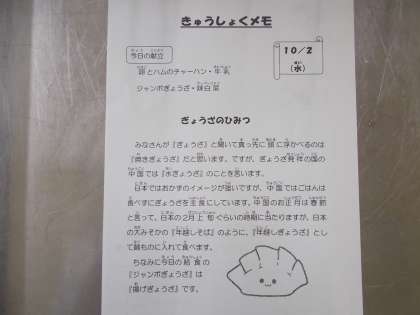 きゅうしょくメモ
今日の献立
10/2
(水)
卵とハムのチャーハン・牛乳
ジャンボぎょうざ・味白菜
ぎょうざのひみつ
みなさんが『ぎょうざ』と聞いて真っ先に頭に浮かべるのは
『焼きぎょうざ』だと思います。ですが、ぎょうざ発祥の国の
中国では『水ぎょうざ』のことを言います。
日本ではおかずのイメージが強いですが、中国ではごはんは
食べずにぎょうざを主食にしています。中国のお正月は春節
と言って、日本の2月上旬ぐらいの時期に当たりますが、日本
の大みそかの『年越しそば』のように、『年越しぎょうざ』とし
て鍋ものに入れて食べます。
ちなみに今日の給食の
『ジャンボぎょうざ』は
『揚げぎょうざ』です。